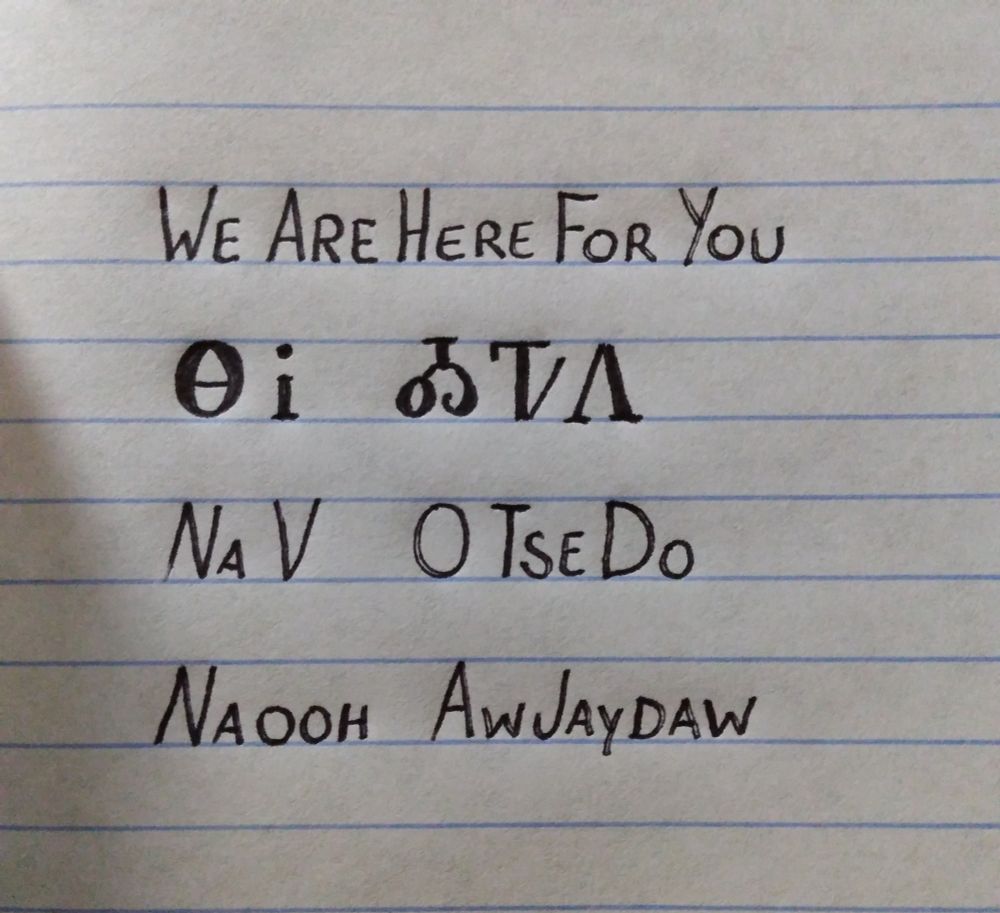 We Are Here For You
ᎾᎥ ᎣᏤᏙ
Na V O Tse Do
Naooh AwJaydaw